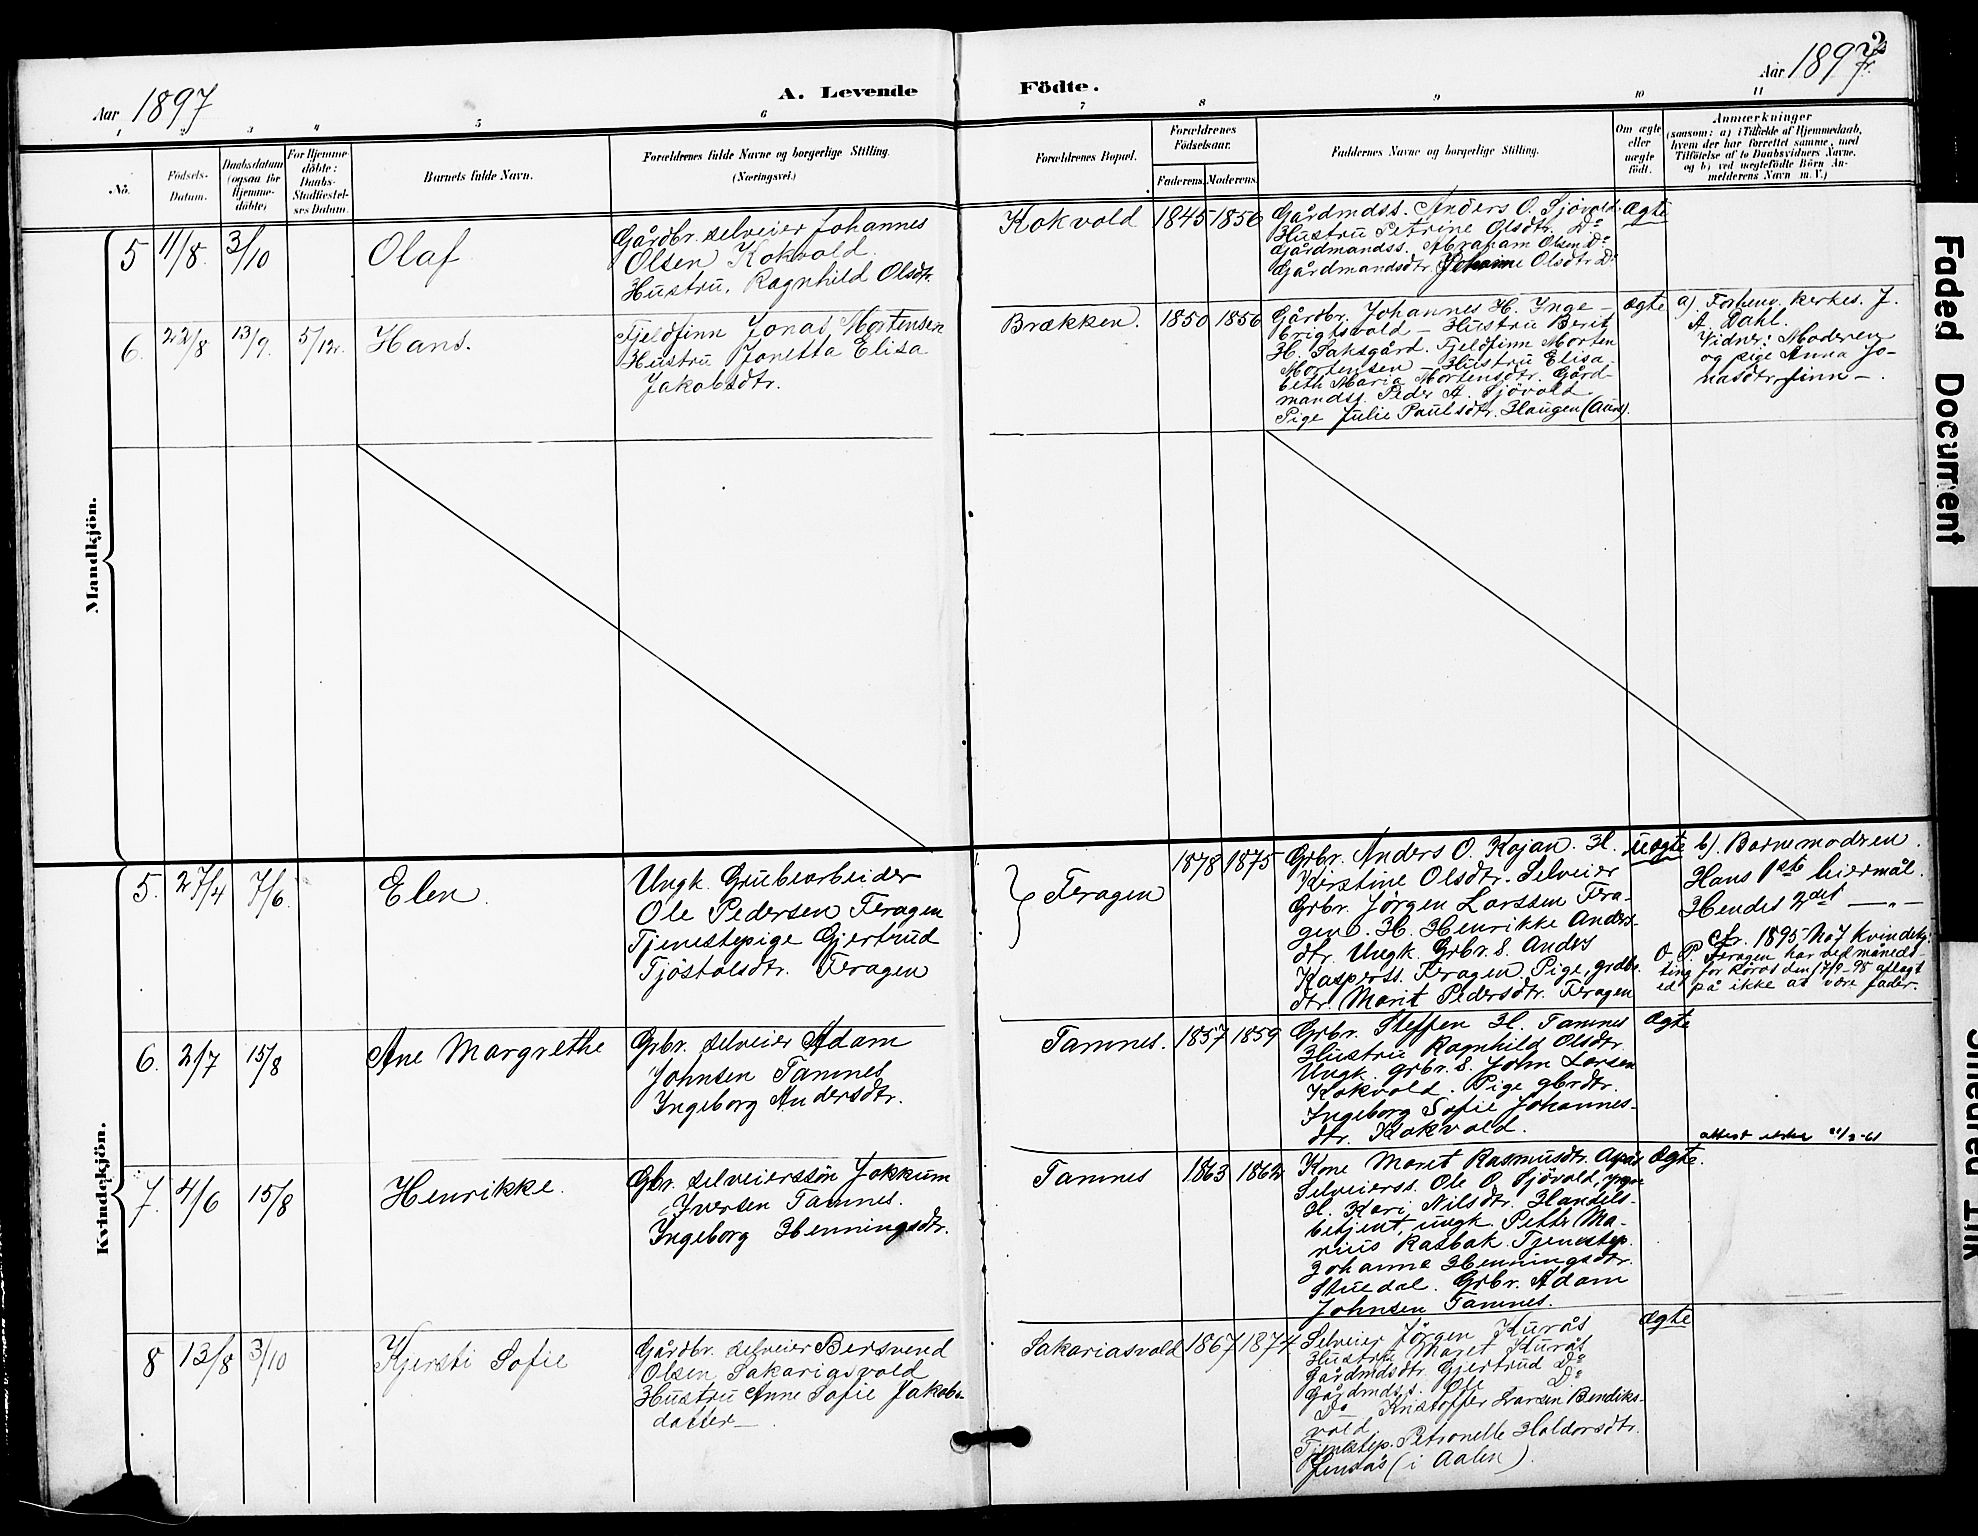 2
Aar 1897
A. Levende
Födte.
Aar 1897.
1 2 3 4 5 6 7 8 9 10 11
No.
Födsels-
Datum.
Daabsdatum
(ogsaa for
Hjemme-
döbte)
For Hjemme-
döbte:
Daabs-
Stadfæstel-
ses Datum.
Barnets fulde Navn.
Forældrenes fulde Navne og borgerlige Stilling.
(Næringsvei.)
Forældrenes Bopæl.
Forældrenes
Födselsaar.
Faderens. Moderens.
Faddernes Navne og borgerlige Stilling.
Om ægte
eller
uægte
födt.
Anmærkninger
(saasom: a) i Tilfælde af Hjemmedaab,
hvem der har forrettet samme, med
Tilföielse af to Daabsvidners Navne,
og b) ved uægtefödte Börn An-
melderens Navn m. V.)
Mandkjön.
5 11/8 3/10
Olaf
Gårdbr. selveier Johannes
Olsen Kokvold
Hustru. Ragnhild Olsdtr.
Kokvold
1845 1856
Gårdmdss. Anders O. Sjövold.
Hustru Petrine Olsdtr. Do
Gjårdmandss. Abraham Olsen Do
Gårdmandsdtr. Johanne Olsdtr Do
Ægte
6. 22/8 13/9. 5/12.
Hans.
Fjeldfinn Jonas Mortensen
Hustru Jonetta Elisa
Jakobsdtr.
Brækken.
1850 1856
Gårdbr. Johannes H. Inge-
brigtsvold – Hustru Berit
H. Saksgård. Fjeldfinn Morten
Mortensen – Hustru Elisa-
beth Maria Mortensdtr. Gård-
mandss. Peder A. Sjövold
Pige Julie Paulsdtr. Haugen (Aurs).
ægte
a) Forhenv. kirkes. J.
A. Dahl.
Vidner: Moderen
og pige Anna Jo-
nasdtr. finn –.
Kvindekjön.
5. 27/4 7/6
Elen.
Ungk. Grubearbeider
Ole Pedersen Feragen
Tjenestepige Gjertrud
Tjöstolsdtr. Feragen
Feragen
1878 1875
Grbr. Anders O. Kojan. H.
Kirstine Olsdtr. Selveier
Grbr. Jörgen Larssen Fera-
gen. H. Henrikke Anders-
dtr. Ungk. Grbr. s. Anders
Kasperss. Feragen. Pige, grdbr.
dtr. Marit Pedersdtr. Feragen
uægte
b). Barnemodren.
Hans 1ste leiermål.
Hendes 2det – " –
cfr. 1895 No 7 Kvindekj.
O. P. Feragen har ved måneds-
ting for Röros den 17/9–98 aflagt
ed på ikke at være fader.
6. 2/7 15/8
Ane Margrethe
Grbr. selveier Adam
Johnsen Tamnes
Ingeborg Andersdtr.
Tamnes.
1857 1859
Grbr. Steffen H. Tamnes
Hustru Ragnhild Olsdtr.
Ungk. grbr. s. John Larsen
Kokvold. Pige gbrdtr.
Ingeborg Sofie Johannes-
dtr. Kokvold.
Ægte
7. 4/6 15/8
Henrikke.
Gbr. selveierssön Jokkum
Iversen Tamnes.
Ingeborg Henningsdtr.
Tamnes
1863 1862
Kone Maret Rasmusdtr.
Selveierss. Ole O. Sjövold,
H. Kari Nilsdtr. Handels-
betjent, ungk. Petter Ma-
rius Rasbak. Tjenestep.
Johanne Henningsdtr.
Stuedal. Grbr. Adam
Johnsen Tamnes.
Ægte.
attest
8 13/8 3/10
Kjersti Sofie
Gårdbr. selveier Bersvend
Olsen Sakariasvold
Hustru Anne Sofie Jakobs-
datter –
Sakariasvold
1867 1874
Selveier Jörgen Kurås
Hustru Maret Kurås
Gårdmdsdtr. Gjertrud Do
Gårdmds. Ole Do
Do Kristoffer Larsen Bendiks-
vold
Tjenestep. Petronelle Haldorsdtr.
(i Aalen).
Ægte
Faded Document
Smeared Ink